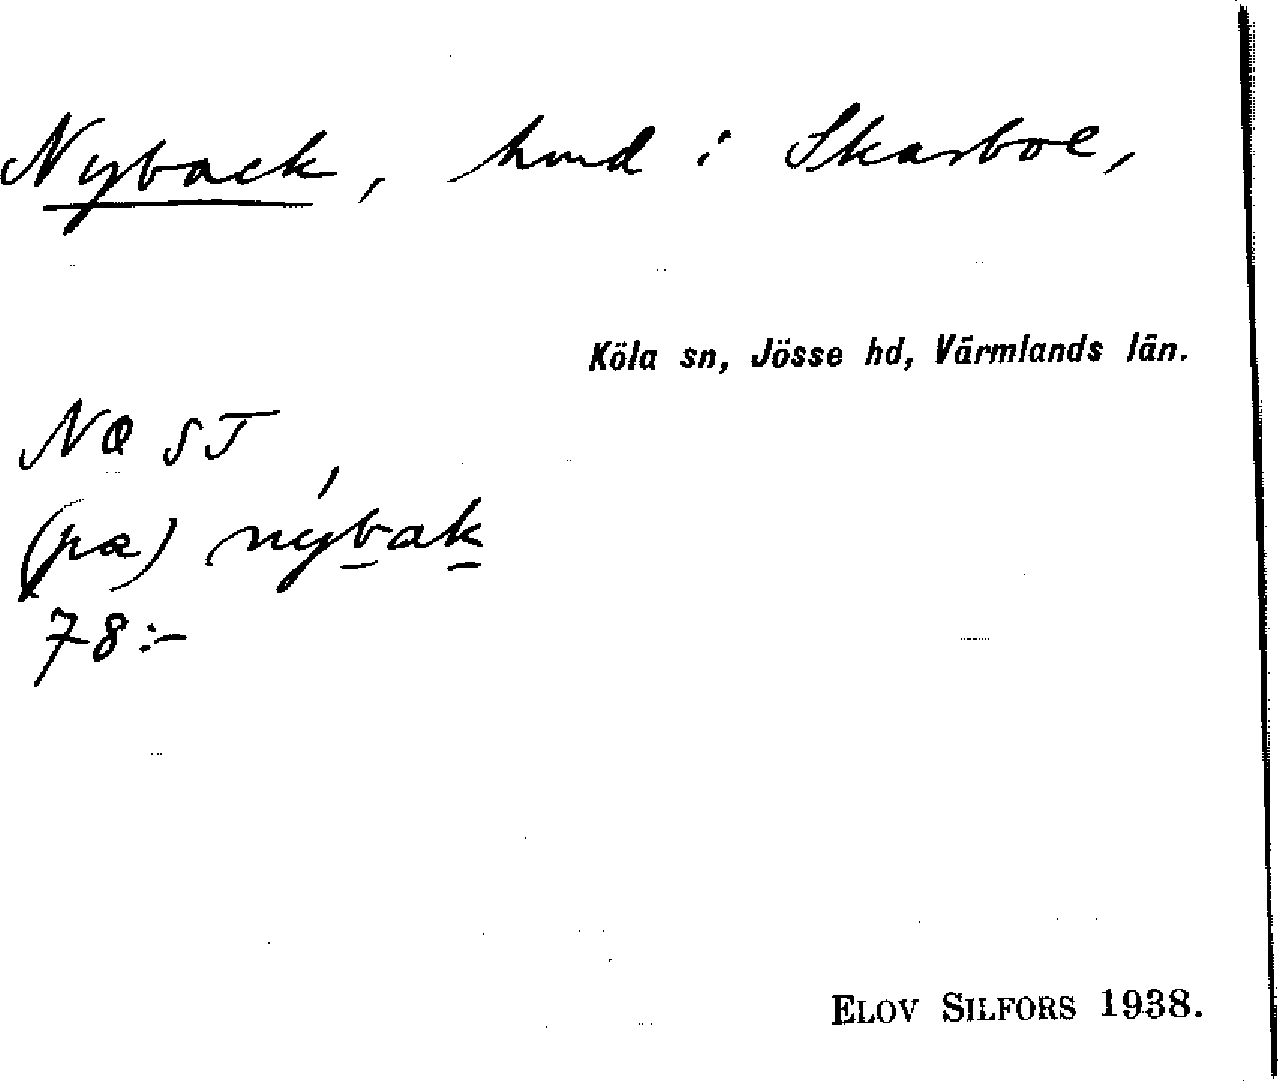 Nyback, hmd i Skarboe,
Köla sn, Jösse hd, Värmlands län.
NQ ST
(pa) nýbak
78:-
ELOV SILFORS 1938.